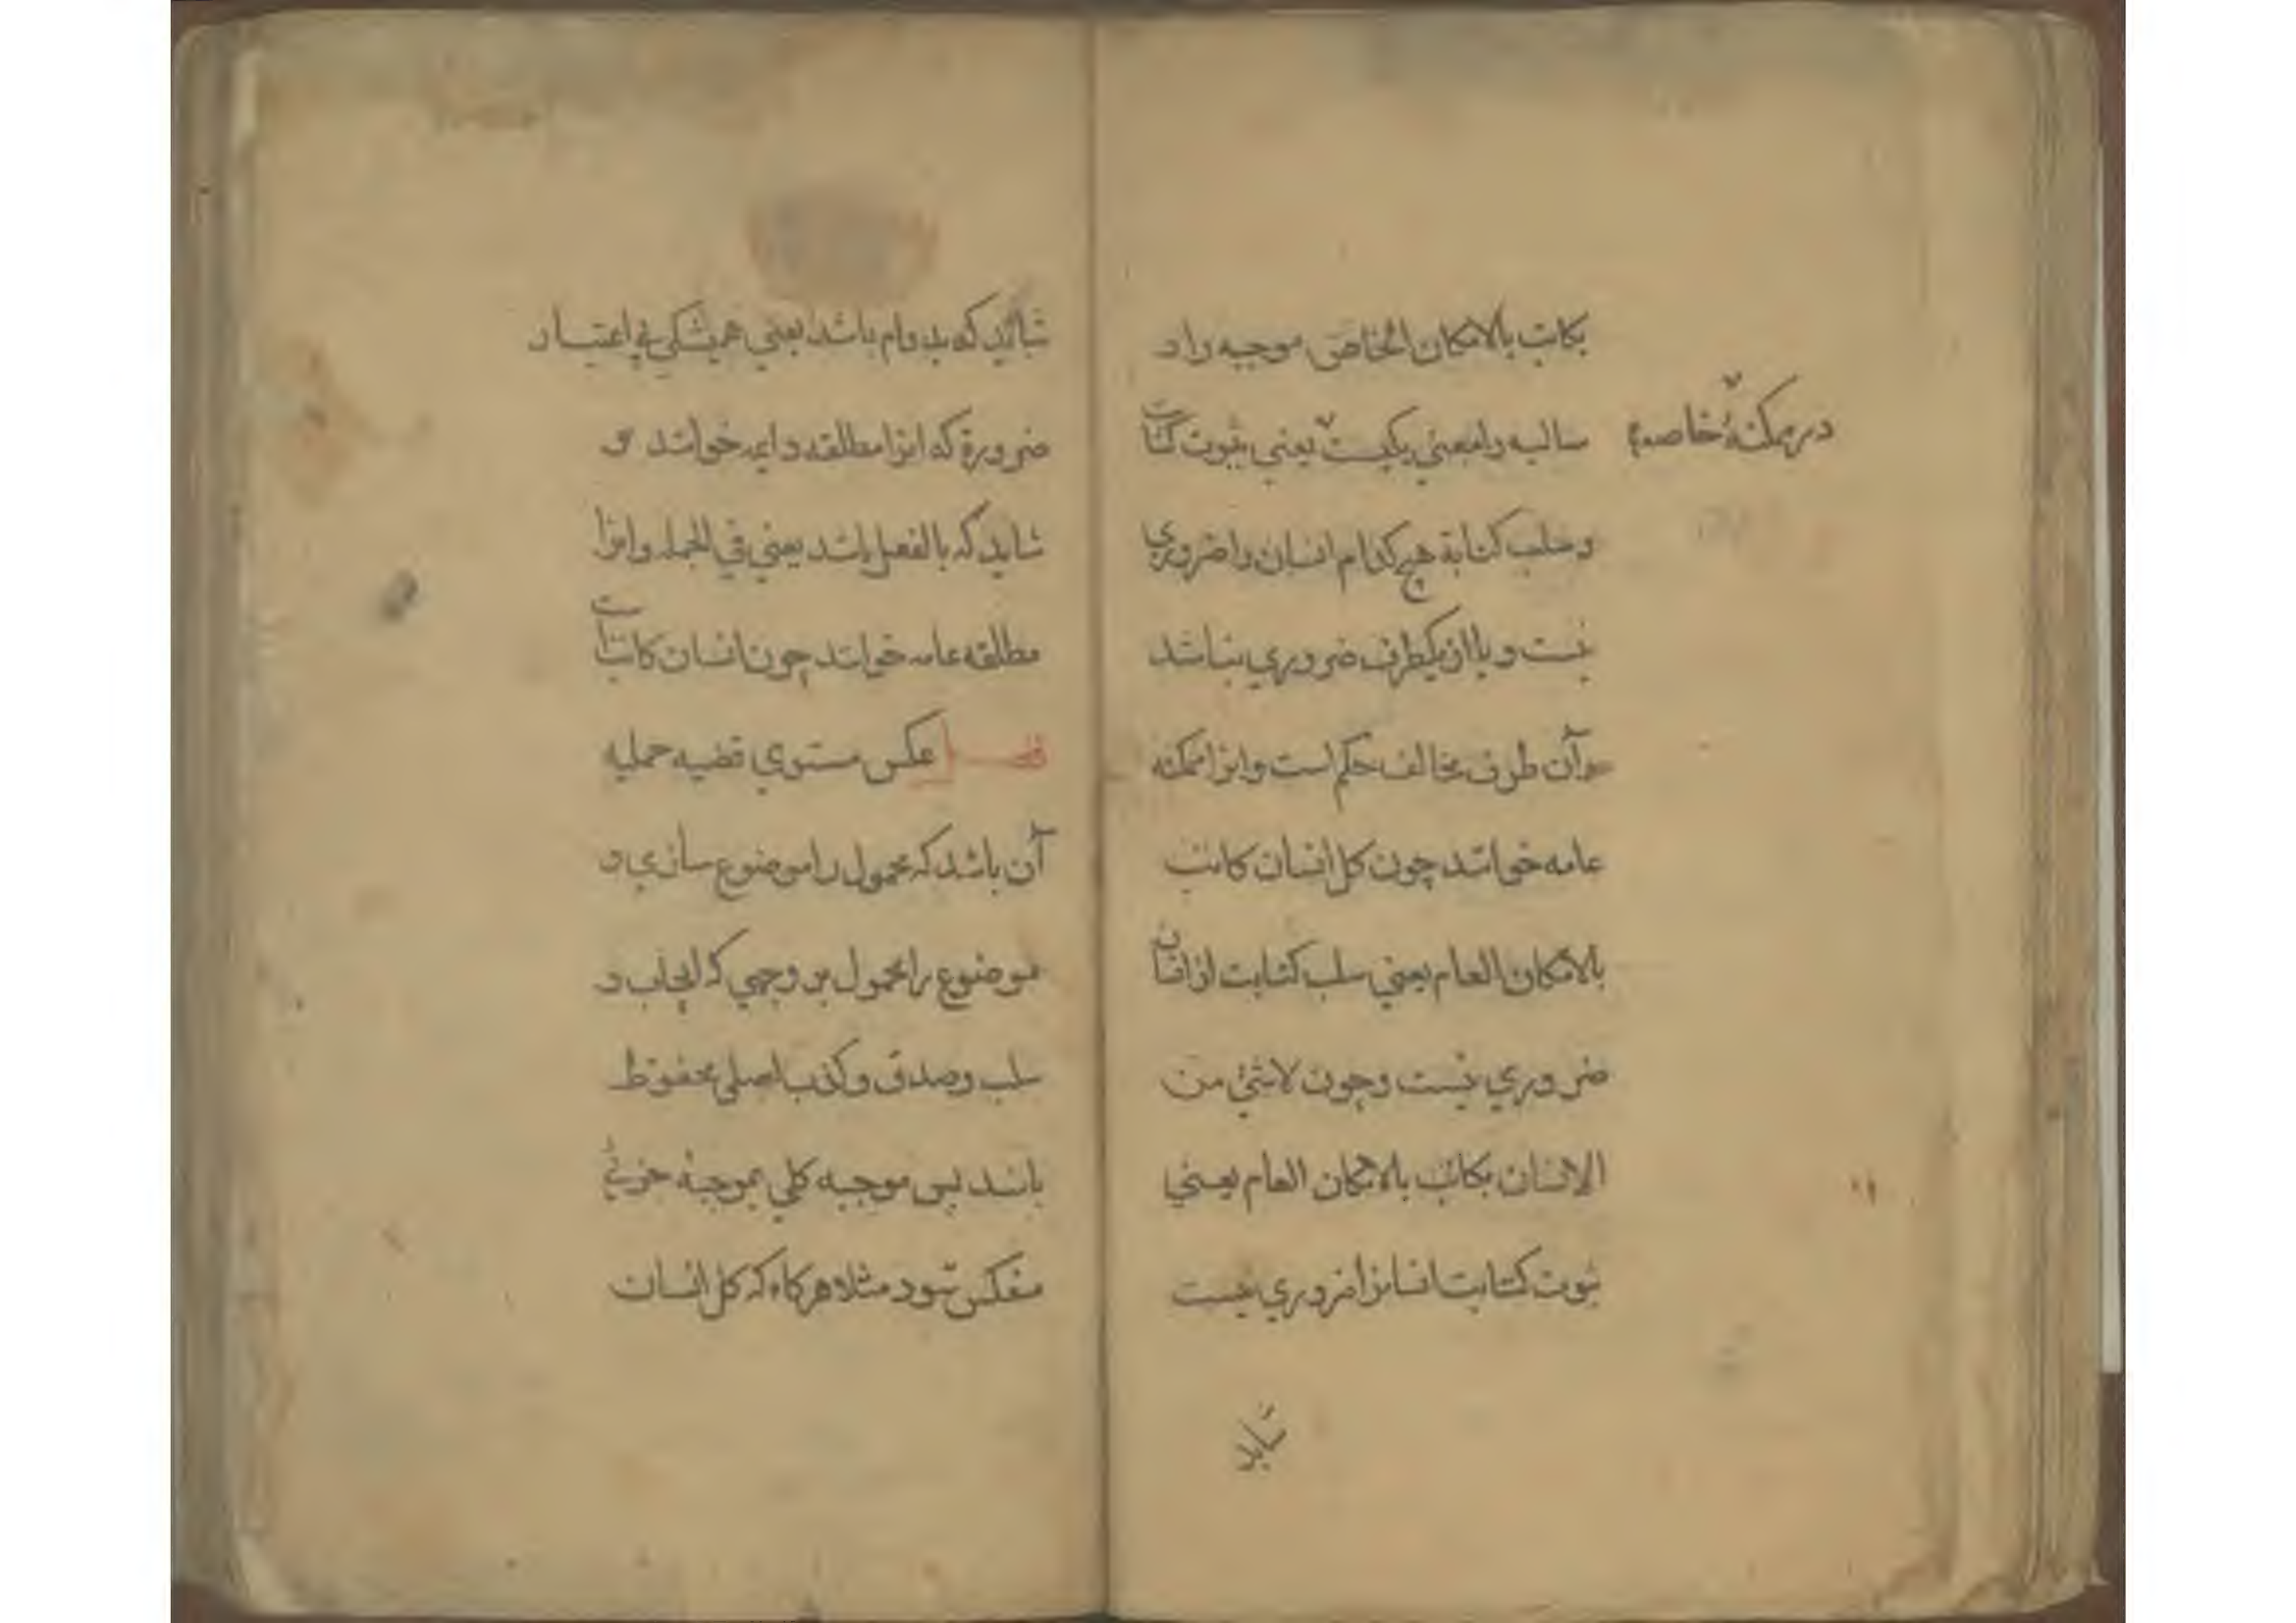 بكاتب بالامكان الخاص موجبه را و
سالبه را معني يكيست يعني ثبوت كتابت
در ممكنهٔ خاصه
و سلب كتابة هيچ كدام انسان را ضروري
نيست و يا از يكطرف ضروري نباشد
و آن طرف مخالف حكم است و انرا ممكنه
عامه خوانند چون كل انسان كاتب
بالامكان العام يعني سلب كتابت از انسان
ضروري نيست و چون لاشئ من
الانسان بكاتب بالامكان العام يعني
ثبوت كتابت انسانرا ضروري نيست
شايد
شايد كه بدوام باشد يعني هميشكي بي اعتبار
ضرورة كه انرا مطلقه دايمه خوانند و
شايد كه بالفعل باشد يعني في الجمله و انرا
مطلقه عامه خوانند چون انسان كاتبست
فصل عكس مستوي قضيه حمليه
آن باشد كه محمول را موضوع سازي و
موضوع را محمول بر وجهي كه ايجاب و
سلب و صدق و كذب اصلي محفوظ
باشد پس موجبه كلي بموجبه جزئي
منعكس شود مثلا هركاه كه كل انسان